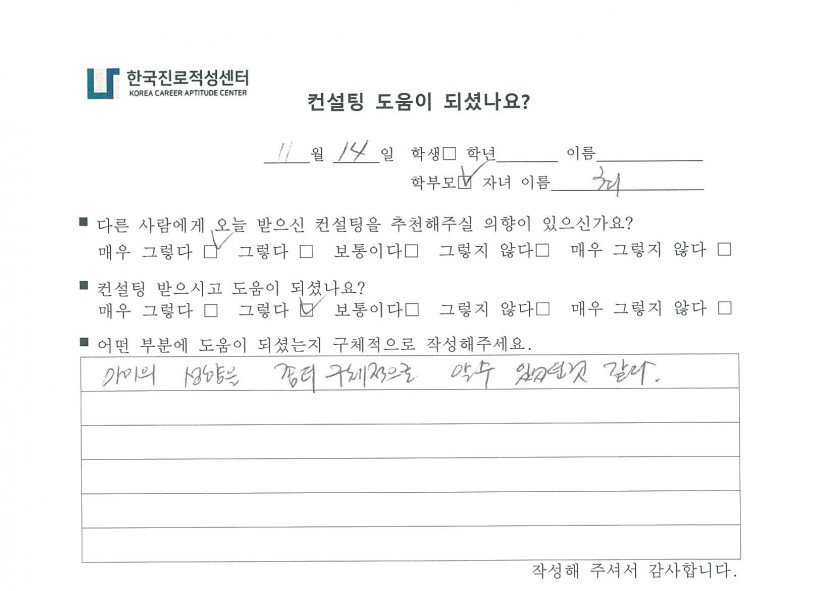 한국진로적성센터
KOREA CAREER APTITUDE CENTER
컨설팅 도움이 되셨나요?
11월 14일 학생□ 학년 이름
학부모☑ 자녀 이름
■ 다른 사람에게 오늘 받으신 컨설팅을 추천해주실 의향이 있으신가요?
매우 그렇다 ☑ 그렇다 □ 보통이다□ 그렇지 않다□ 매우 그렇지 않다 □
■ 컨설팅 받으시고 도움이 되셨나요?
매우 그렇다 □ 그렇다 ☑ 보통이다□ 그렇지 않다□ 매우 그렇지 않다 □
■ 어떤 부분에 도움이 되셨는지 구체적으로 작성해주세요.
아이의 성향을 좀더 구체적으로 알수 있었던것 같다.
작성해 주셔서 감사합니다.